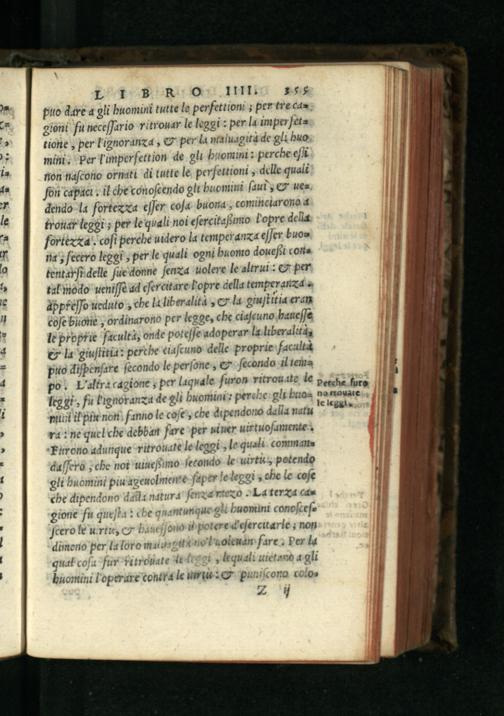 LIBRO IIII. 355
puo dare a gli huomini tutte le perfettioni; per tre ca-
gioni fu necessario ritrouar le leggi: per la imperfet-
tione, per l'ignoranza, & per la maluagità de gli huo
mini. Per l'imperfettion de gli huomini: perche essi
non nascono ornati di tutte le perfettioni, delle quali
son capaci. il che conoscendo gli huomini saui, & ue-
dendo la fortezza esser cosa buona, cominciarono a
trouar leggi; per le quali noi esercitassimo l'opre della
fortezza. cosi perche uidero la temperanza esser buo-
na, fecero leggi, per le quali ogni huomo douessi con-
tentarsi delle sue donne senza uolere le altrui: & per
tal modo uenisse ad esercitare l'opre della temperanza.
appresso ueduto, che la liberalità, & la giustitia eran
cose buone, ordinarono per legge, che ciascuno hauesse
le proprie facultà, onde potesse adoperar la liberalità,
& la giustitia: perche ciascuno delle proprie facultà
puo dispensare secondo le persone, & secondo il tem-
po. L'altra cagione, per laquale furon ritrouate le
leggi, fu l'ignoranza de gli huomini: perche gli huo-
mini il piu non sanno le cose, che dipendono dalla natu
ra: ne quel che debban fare per uiuer uirtuosamente.
Furono adunque ritrouate le leggi, le quali comman-
dassero, che noi uiuessimo secondo le uirtù, potendo
gli huomini piu ageuolmente saper le leggi, che le cose
che dipendono dalla natura senza mezo. La terza ca-
gione fu questa: che quantunque gli huomini conoscef-
scero le uirtù, & hauessono il potere d'esercitarle; non
dimeno per la loro maluagità no'l uoleuan fare. Per la
qual cosa fur ritrouate le leggi, lequali uietano a gli
huomini l'operare contra le uirtù: & puniscono colo-
Z ij
Perche furo
no trouate
le leggi.